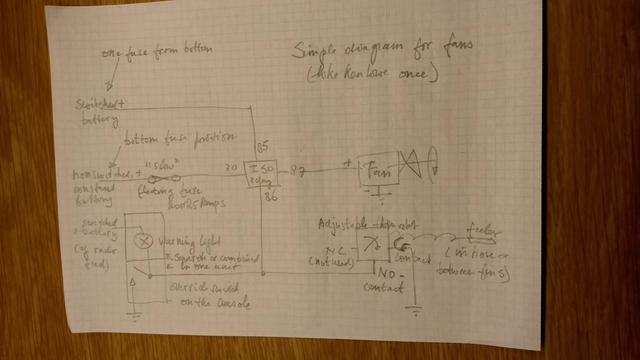 one fuse from bottom
Simple diagram for fans
(like Kenlowe once)
switched +
battery
bottom fuse position
85
"slow"
30
ISO
relay
87
+
Fan
-
nonswitched, +
constant
battery
floating fuse
20or25Amps
86
switched
+battery
(eg radio
feed)
Warning light
separate or combined
in one unit
override switch
on the console
Adjustable thermostat
N.C.
(not used)
contact
NO-
contact
feeler
(in hose or
between fins)